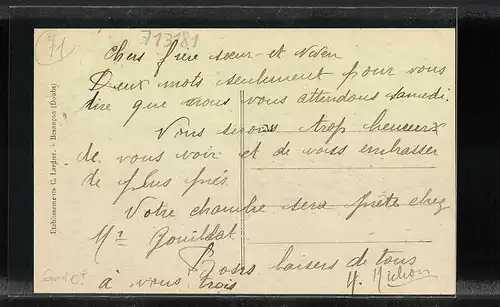 71
713181
Chers frère sœur et
Deux mots seulement pour vous
dire que nous vous attendons samedi.
Nous serons trop heureux
de vous voir et de vous embrasser
de plus près
Votre chambre sera prête chez
Mr
Bons baisers de tous
à vous trois
Etablissements C. Lardier. - Besançon (Doubs)